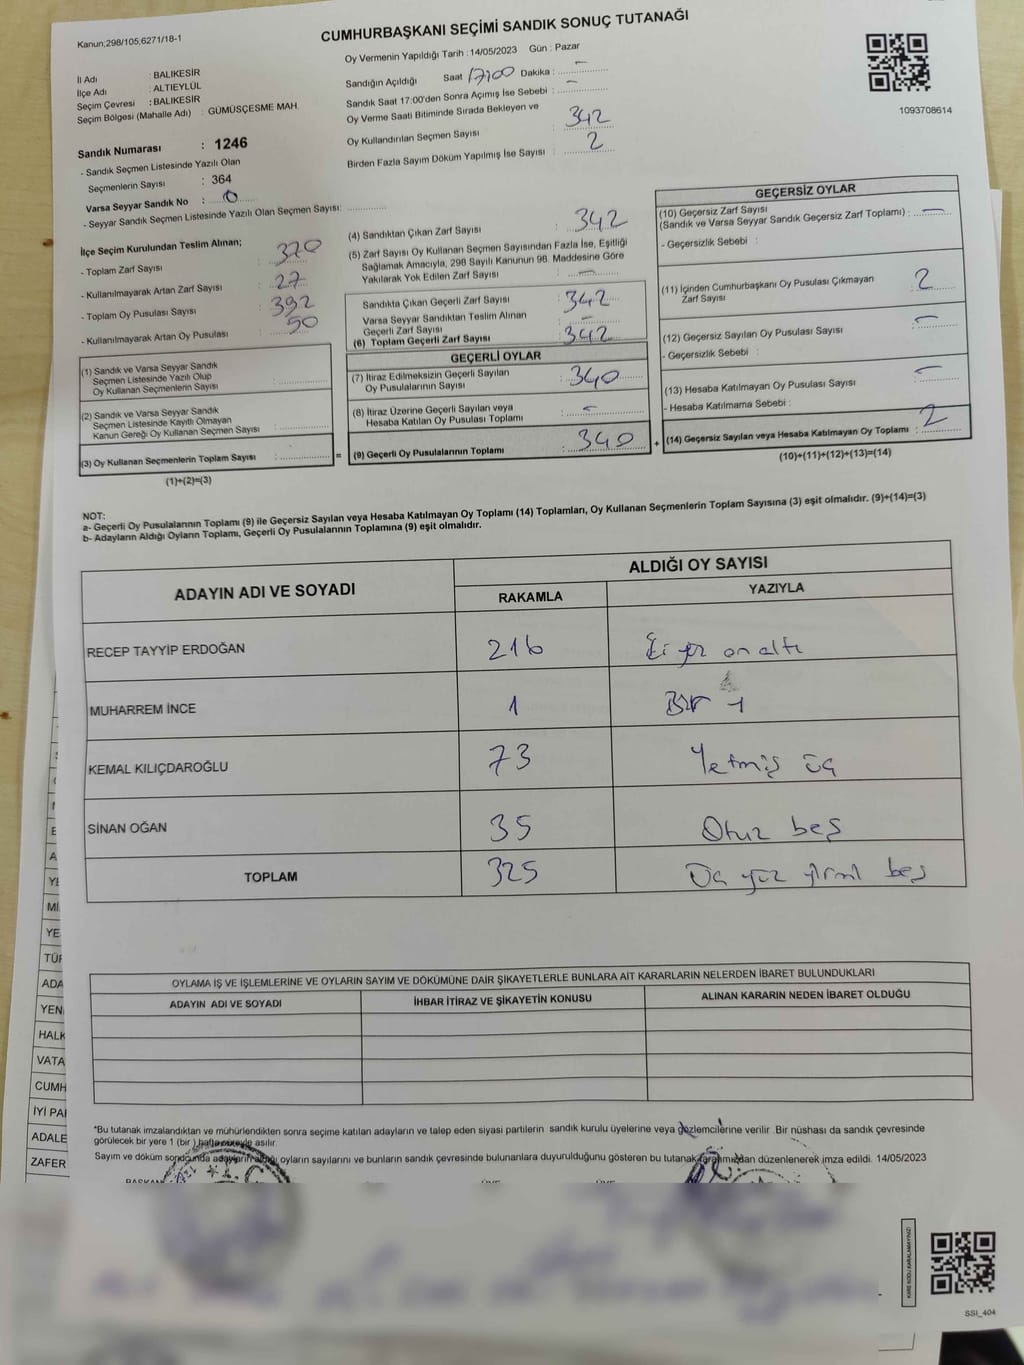 Kanun;298/105,6271/18-1
CUMHURBAŞKANI SEÇİMİ SANDIK SONUÇ TUTANAĞI
İl Adı : BALIKESİR
İlçe Adı : ALTIEYLÜL
Seçim Çevresi : BALIKESİR
Seçim Bölgesi (Mahalle Adı) : GÜMÜŞÇEŞME MAH.
Sandık Numarası : 1246
- Sandık Seçmen Listesinde Yazılı Olan
Seçmenlerin Sayısı : 364
Varsa Seyyar Sandık No : 0
- Seyyar Sandık Seçmen Listesinde Yazılı Olan Seçmen Sayısı:
Oy Vermenin Yapıldığı Tarih : 14/05/2023 Gün : Pazar
Sandığın Açıldığı Saat 17:00 Dakika : –
Sandık Saat 17:00'den Sonra Açımış İse Sebebi : –
Oy Verme Saati Bitiminde Sırada Bekleyen ve
Oy Kullandırılan Seçmen Sayısı 342
Birden Fazla Sayım Döküm Yapılmış İse Sayısı : 2
1093708614
İlçe Seçim Kurulundan Teslim Alınan;
- Toplam Zarf Sayısı : 370
- Kullanılmayarak Artan Zarf Sayısı : 27
- Toplam Oy Pusulası Sayısı : 392
- Kullanılmayarak Artan Oy Pusulası : 50
(1) Sandık ve Varsa Seyyar Sandık
Seçmen Listesinde Yazılı Olup
Oy Kullanan Seçmenlerin Sayısı :
(2) Sandık ve Varsa Seyyar Sandık
Seçmen Listesinde Kayıtlı Olmayan
Kanun Gereği Oy Kullanan Seçmen Sayısı :
(3) Oy Kullanan Seçmenlerin Toplam Sayısı : =
(1)+(2)=(3)
(4) Sandıktan Çıkan Zarf Sayısı : 342
(5) Zarf Sayısı Oy Kullanan Seçmen Sayısından Fazla İse, Eşitliği
Sağlamak Amacıyla, 298 Sayılı Kanunun 98. Maddesine Göre
Yakılarak Yok Edilen Zarf Sayısı : –
Sandıkta Çıkan Geçerli Zarf Sayısı : 342
Varsa Seyyar Sandıktan Teslim Alınan
Geçerli Zarf Sayısı : –
(6) Toplam Geçerli Zarf Sayısı : 342
GEÇERLİ OYLAR
(7) İtiraz Edilmeksizin Geçerli Sayılan
Oy Pusulalarının Sayısı : 340
(8) İtiraz Üzerine Geçerli Sayılan veya
Hesaba Katılan Oy Pusulası Toplamı : –
(9) Geçerli Oy Pusulalarının Toplamı : 340 +
GEÇERSİZ OYLAR
(10) Geçersiz Zarf Sayısı
(Sandık ve Varsa Seyyar Sandık Geçersiz Zarf Toplamı) : –
- Geçersizlik Sebebi :
(11) İçinden Cumhurbaşkanı Oy Pusulası Çıkmayan
Zarf Sayısı : 2
(12) Geçersiz Sayılan Oy Pusulası Sayısı : –
- Geçersizlik Sebebi :
(13) Hesaba Katılmayan Oy Pusulası Sayısı : –
- Hesaba Katılmama Sebebi :
(14) Geçersiz Sayılan veya Hesaba Katılmayan Oy Toplamı : 2
(10)+(11)+(12)+(13)=(14)
NOT:
a- Geçerli Oy Pusulalarının Toplamı (9) ile Geçersiz Sayılan veya Hesaba Katılmayan Oy Toplamı (14) Toplamları, Oy Kullanan Seçmenlerin Toplam Sayısına (3) eşit olmalıdır. (9)+(14)=(3)
b- Adayların Aldığı Oyların Toplamı, Geçerli Oy Pusulalarının Toplamına (9) eşit olmalıdır.
ADAYIN ADI VE SOYADI ALDIĞI OY SAYISI
RAKAMLA YAZIYLA
RECEP TAYYİP ERDOĞAN 216 İki yüz on altı
MUHARREM İNCE 1 Bir 1
KEMAL KILIÇDAROĞLU 73 Yetmiş üç
SİNAN OĞAN 35 Otuz beş
TOPLAM 325 Üç yüz yirmi beş
OYLAMA İŞ VE İŞLEMLERİNE VE OYLARIN SAYIM VE DÖKÜMÜNE DAİR ŞİKAYETLERLE BUNLARA AİT KARARLARIN NELERDEN İBARET BULUNDUKLARI
ADAYIN ADI VE SOYADI İHBAR İTİRAZ VE ŞİKAYETİN KONUSU ALINAN KARARIN NEDEN İBARET OLDUĞU
*Bu tutanak imzalandıktan ve mühürlendikten sonra seçime katılan adayların ve talep eden siyasi partilerin sandık kurulu üyelerine veya gözlemcilerine verilir. Bir nüshası da sandık çevresinde
görülecek bir yere 1 (bir) hafta süreyle asılır.
Sayım ve döküm sonucunda adayların aldığı oyların sayılarını ve bunların sandık çevresinde bulunanlara duyurulduğunu gösteren bu tutanak tarafımızdan düzenlenerek imza edildi. 14/05/2023
BAŞKAN ÜYE ÜYE
YE
Mİ
YE
TÜR
ADA
YENİ
HALK
VATA
CUMH
İYİ PAR
ADALE
ZAFER
KARE KODU KARALAMAYINIZ!
SSI_404